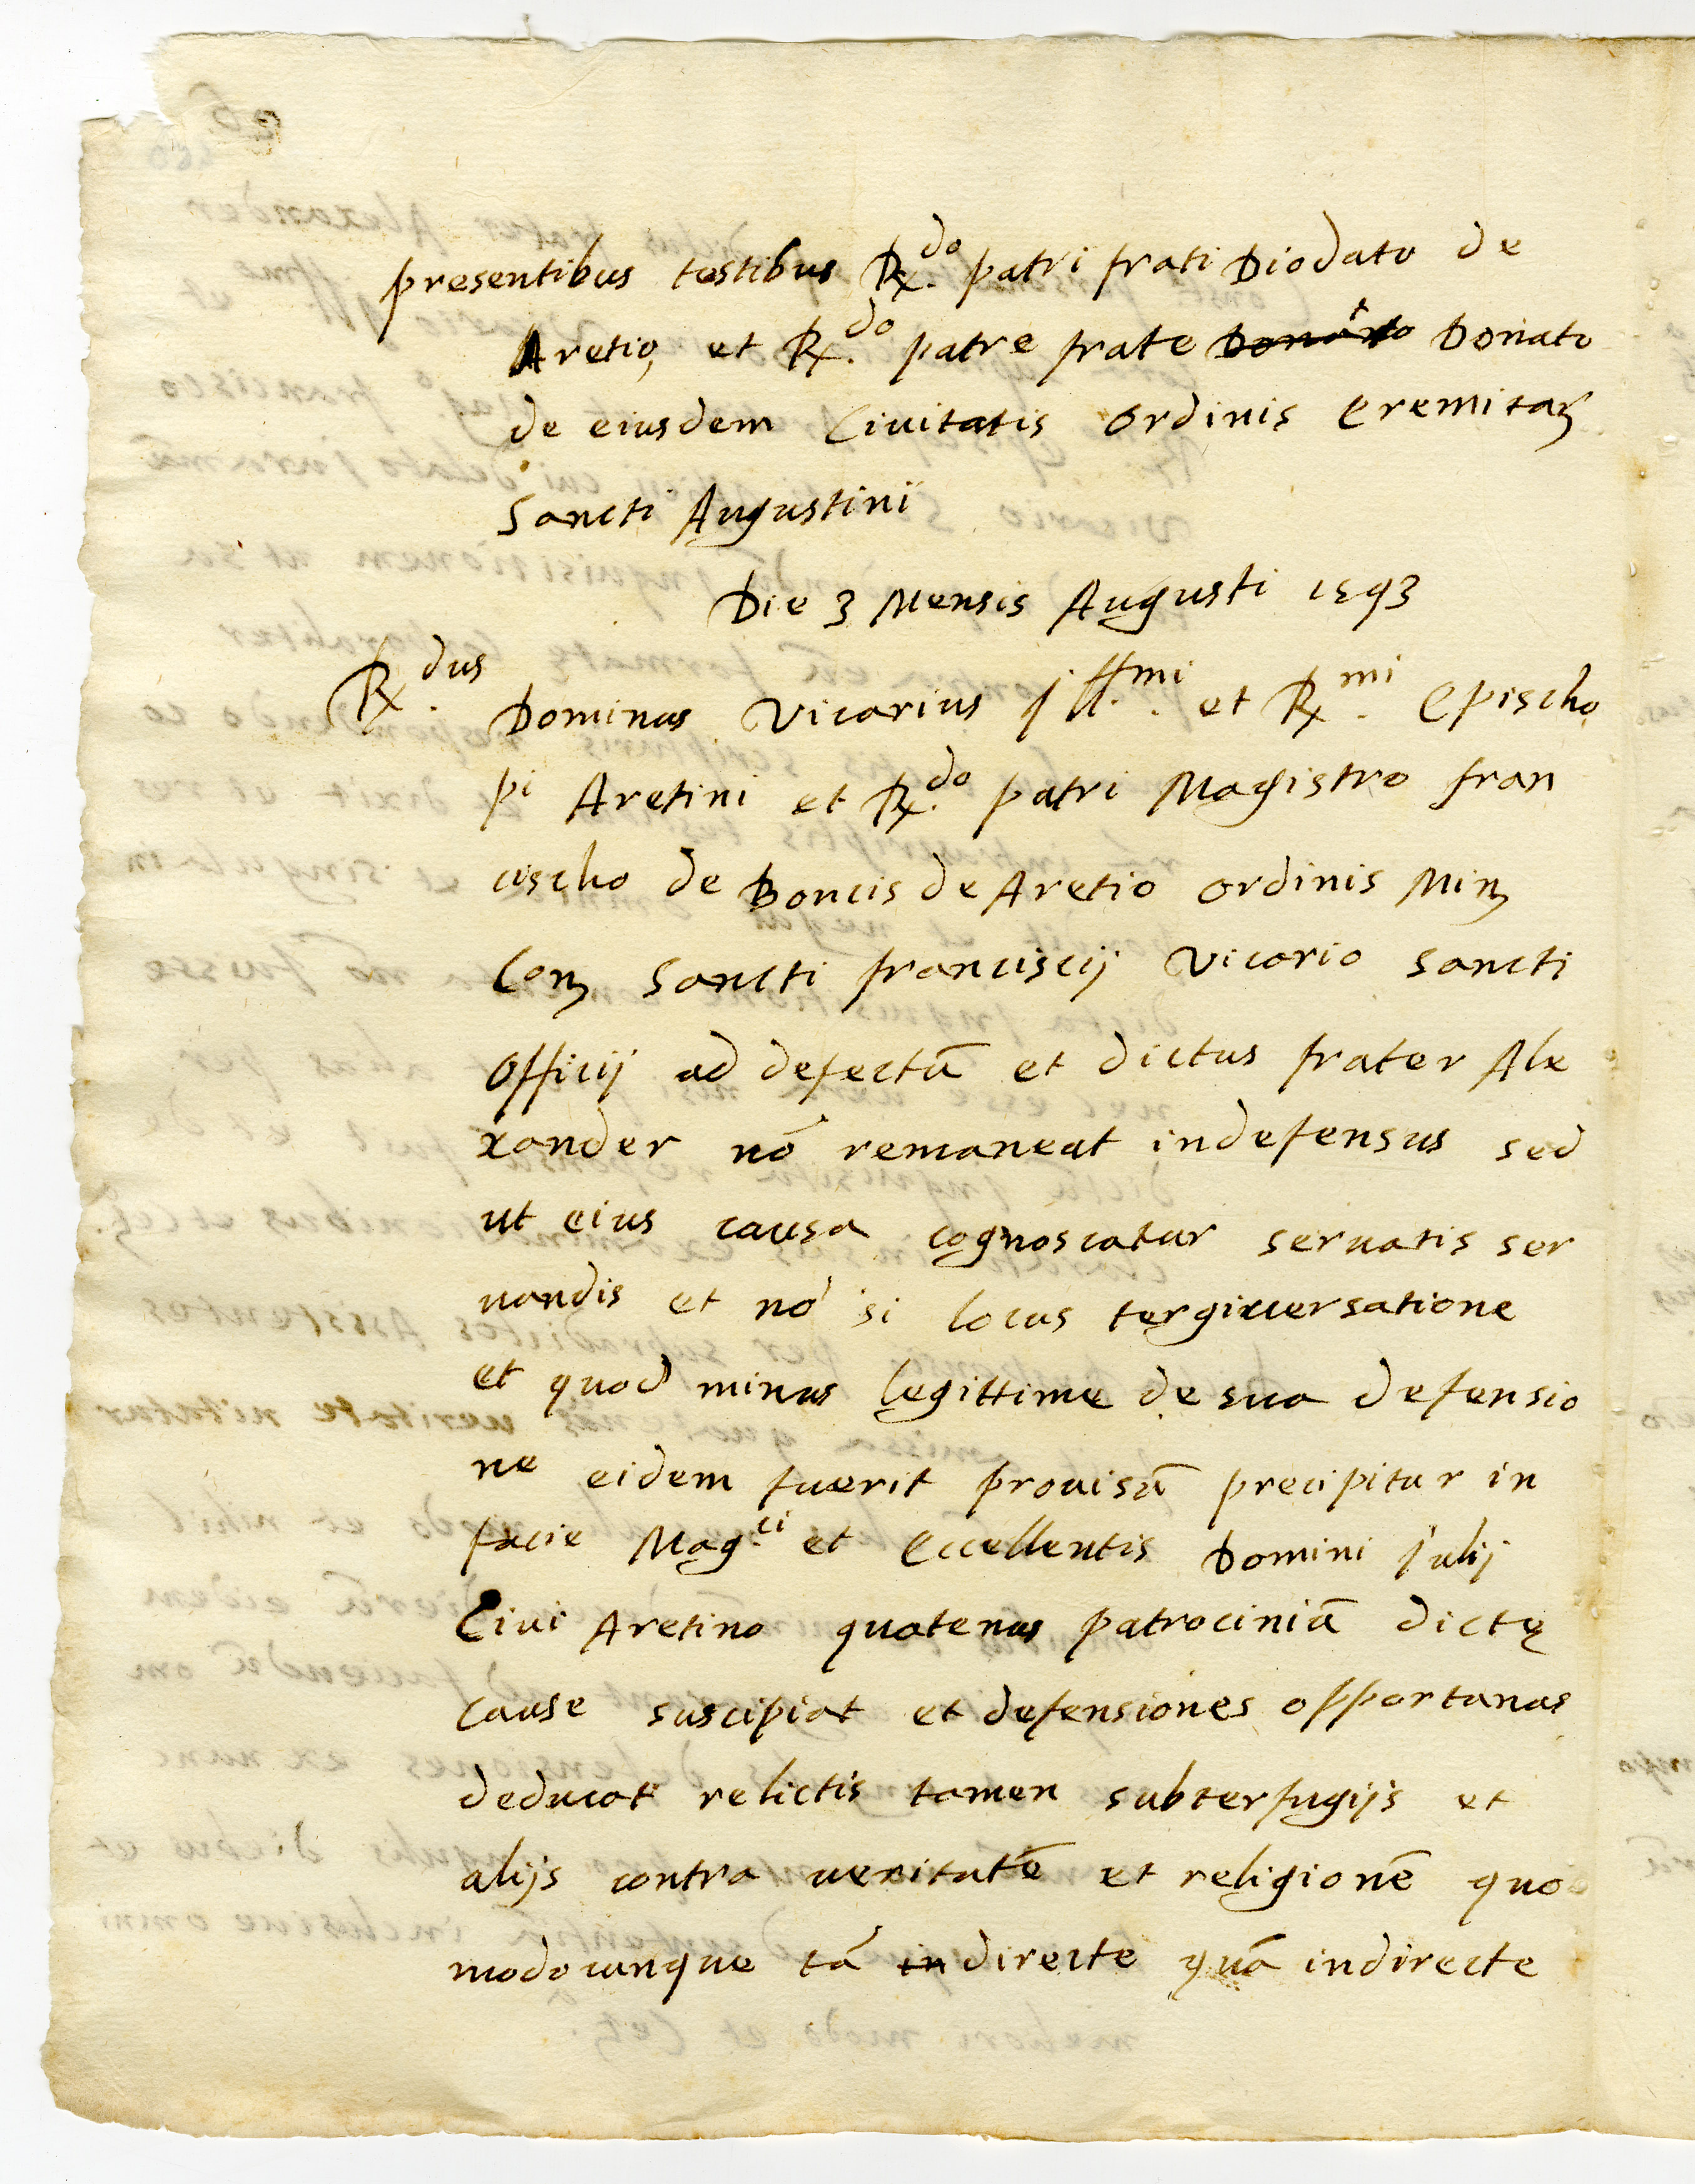 presentibus testibus R.do patri frati Diodato de
Aretio, et R.do patre frate Donato Donato
de eiusdem Ciuitatis ordinis Eremitaꝝ
Sancti Augustini
Die 3 Mensis Augusti 1593
R.dus Dominus Vicarius Ill.mi et R.mi Epischo
pi Aretini et R.do patri Magistro fran
cischo de Boncis de Aretio ordinis Minꝝ
Conꝝ Sancti franciscij Vicario Sancti
Officij ad defectū et dictus frater Ale
xander nō remaneat indefensus sed
ut eius causa cognoscatur seruatis ser
uandis et nō si locus tergiuersatione
et quod minus legittime de sua defensio
ne eidem fuerit prouisū precipitur in
facie Mag.ci et Eccellentis Domini Julij
Ciui Aretino quatenus patrociniū dictę
cause suscipiat et defensiones opportunas
deducat relictis tamen subterfugijs et
alijs contra ueritatē et religionē quo
modocunque tā in directe quā indirecte